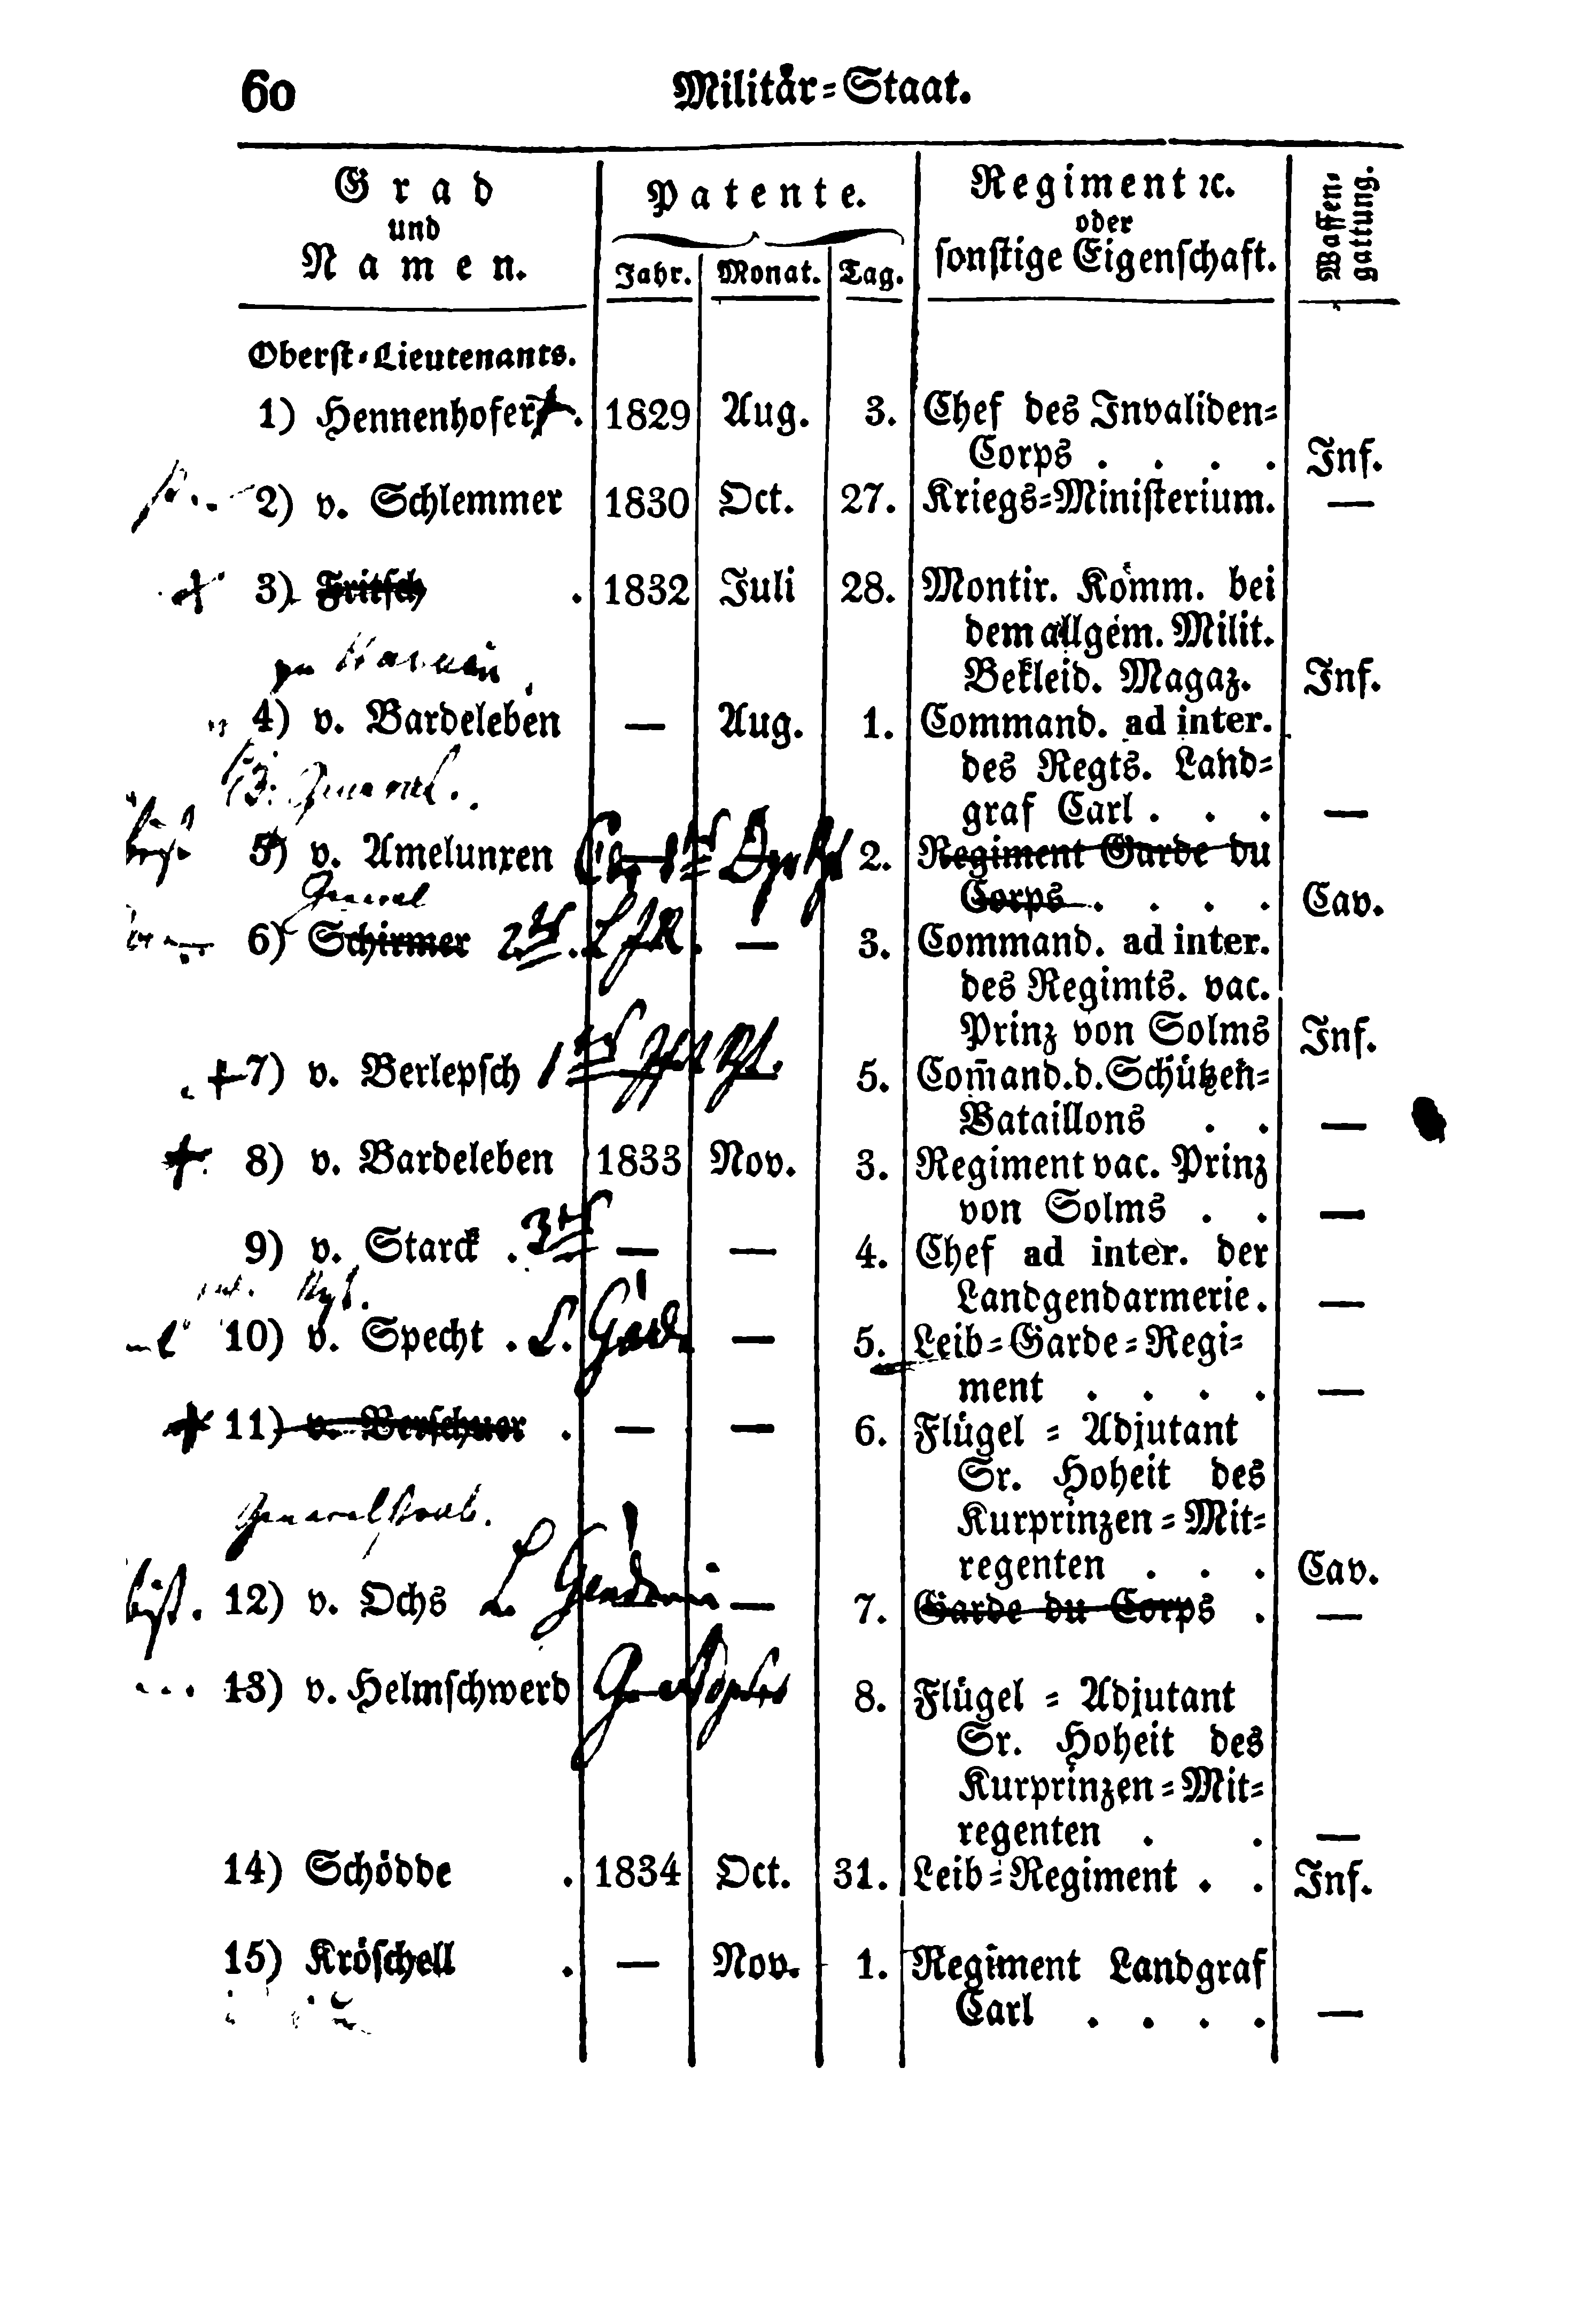 60 Militär=Staat.
Grad
und
Namen.
Patente.
Jahr. Monat. Tag.
Regiment ꝛc.
oder
sonstige Eigenschaft.
Waffen-
gattung.
Oberst-Lieutenants.
1) Hennenhofer . 1829 Aug. 3. Chef des Invaliden=
Corps . . . . Inf.
2) v. Schlemmer 1830 Oct. 27. Kriegs=Ministerium. —
3) Fritsch . 1832 Juli 28. Montir. Komm. bei
dem allgem. Milit.
Bekleid. Magaz. Inf.
4) v. Bardeleben — Aug. 1. Command. ad inter.
des Regts. Land=
General.
graf Carl . . . —
5) v. Amelunxen 2. Regiment Garde du
General
Corps . . . . Cav.
6) Schirmer — 3. Command. ad inter.
des Regimts. vac.
Prinz von Solms Inf.
7) v. Berlepsch 5. Com̄and. d. Schützen=
Bataillons . . —
8) v. Bardeleben 1833 Nov. 3. Regiment vac. Prinz
von Solms . . —
9) v. Starck . — — 4. Chef ad inter. der
Landgendarmerie . —
10) v. Specht . L. Garde — 5. Leib=Garde=Regi=
ment . . . . —
11) v. Berschuer . — — 6. Flügel = Adjutant
Sr. Hoheit des
Generalstaab.
Kurprinzen = Mit=
regenten . . . Cav.
12) v. Ochs — 7. Garde du Corps . —
13) v. Helmschwerd 8. Flügel = Adjutant
Sr. Hoheit des
Kurprinzen = Mit=
regenten . . —
14) Schödde . 1834 Oct. 31. Leib=Regiment . . Inf.
15) Kröschell . — Nov. 1. Regiment Landgraf
Carl . . . . —